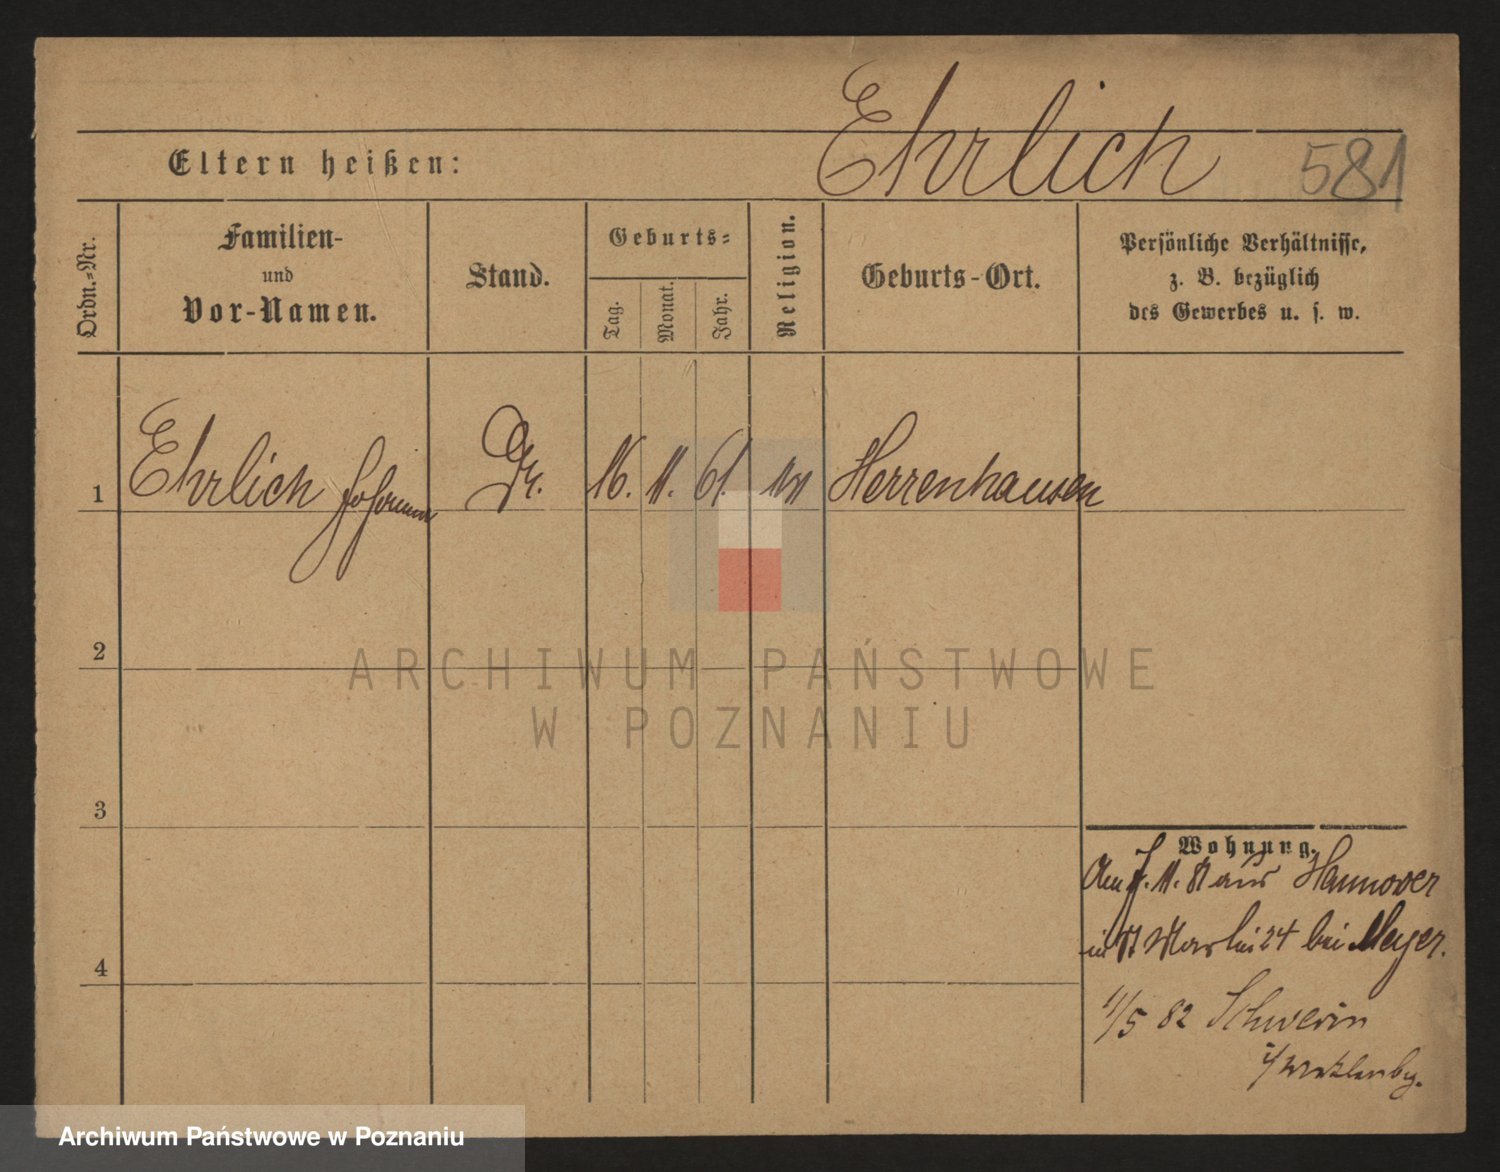 Ehrlich
581
Eltern heißen:
Ordn.-Nr.
Familien-
und
Vor-Namen.
Stand.
Geburts-
Tag.
Monat.
Jahr.
Religion.
Geburts-Ort.
Persönliche Verhältnisse,
z. B. bezüglich
des Gewerbes u. s. w.
1 Ehrlich Johann Dr. 16. 11. 61. Herrenhausen
2
3
4
Wohnung.
Am 7. 11. 81 aus Hannover
in St Martin 24 bei Meyer.
1/5 82 Schwerin
i/ Mecklenbg.
ARCHIWUM PAŃSTWOWE
W POZNANIU
Archiwum Państwowe w Poznaniu